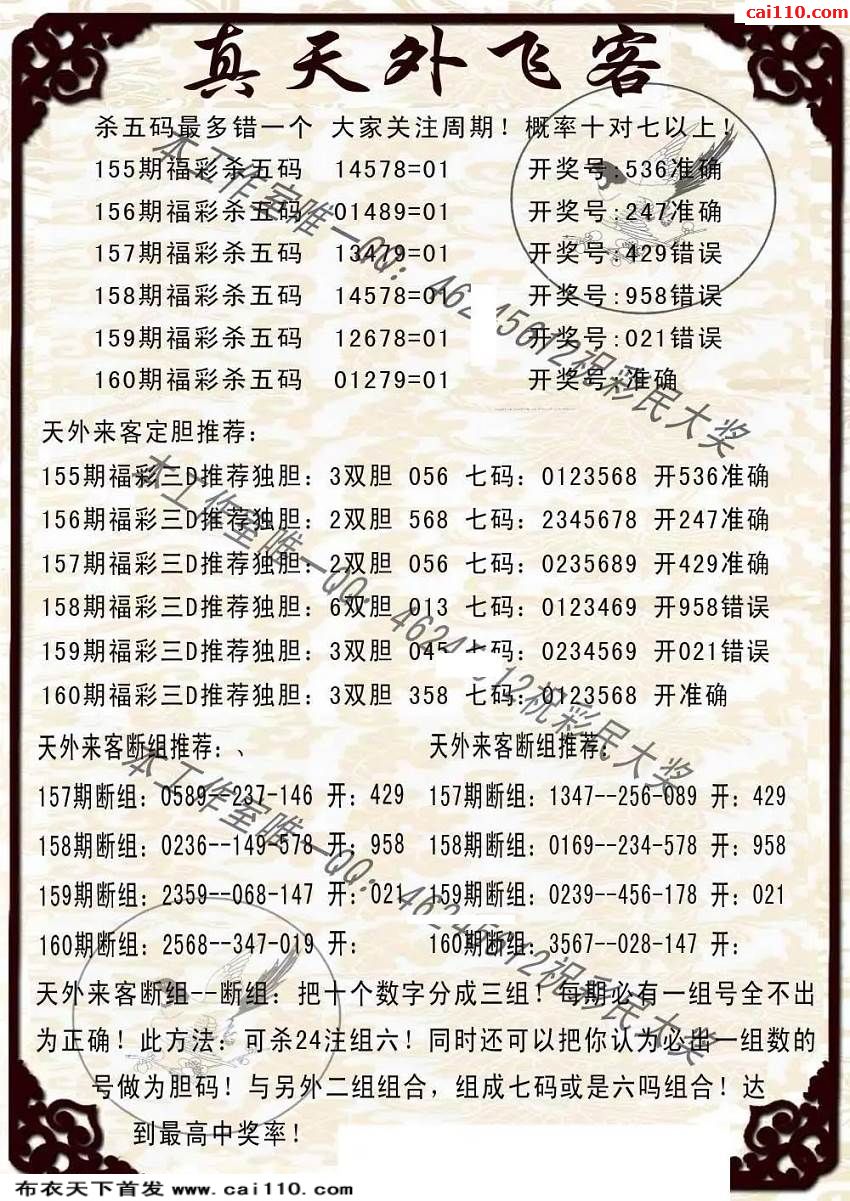 cai110.com
真天外飞客
杀五码最多错一个 大家关注周期！概率十对七以上！
155期福彩杀五码 14578=01 开奖号:536准确
156期福彩杀五码 01489=01 开奖号:247准确
157期福彩杀五码 13479=01 开奖号:429错误
158期福彩杀五码 14578=01 开奖号:958错误
159期福彩杀五码 12678=01 开奖号:021错误
160期福彩杀五码 01279=01 开奖号:准确
天外来客定胆推荐：
155期福彩三D推荐独胆：3双胆 056 七码：0123568 开536准确
156期福彩三D推荐独胆：2双胆 568 七码：2345678 开247准确
157期福彩三D推荐独胆：2双胆 056 七码：0235689 开429准确
158期福彩三D推荐独胆：6双胆 013 七码：0123469 开958错误
159期福彩三D推荐独胆：3双胆 045 七码：0234569 开021错误
160期福彩三D推荐独胆：3双胆 358 七码：0123568 开准确
天外来客断组推荐：、 天外来客断组推荐：
157期断组：0589--237-146 开：429 157期断组：1347--256-089 开：429
158期断组：0236--149-578 开：958 158期断组：0169--234-578 开：958
159期断组：2359--068-147 开：021 159期断组：0239--456-178 开：021
160期断组：2568--347-019 开： 160期断组：3567--028-147 开：
天外来客断组--断组：把十个数字分成三组！每期必有一组号全不出
为正确！此方法：可杀24注组六！同时还可以把你认为必出一组数的
号做为胆码！与另外二组组合，组成七码或是六吗组合！达
到最高中奖率！
本工作室唯一QQ：46245612祝彩民大奖
本工作室唯一QQ：46245612祝彩民大奖
本工作室唯一QQ：46245612祝彩民大奖
布衣天下首发 www.cai110.com